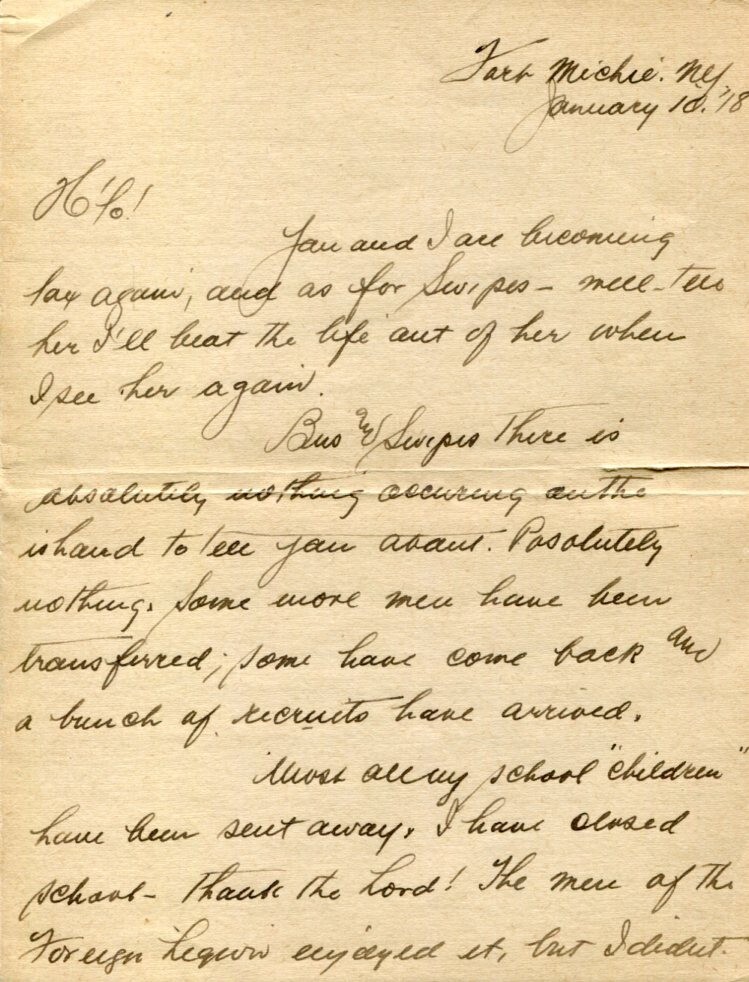 Fort Michie. NY
January 10. '18
H'lo!
You and I are becoming
lax again, and as for Swipes - well - tell
her I'll beat the life out of her when
I see her again.
Bus and Swipes there is
absolutely nothing occuring on the
island to tell you about. Posolutely
nothing. Some more men have been
transferred; some have come back and
a bunch of recruits have arrived.
Most all my school "children"
have been sent away. I have closed
school - Thank the Lord! The men of the
Foreign Legion enjoyed it, but I didn't.